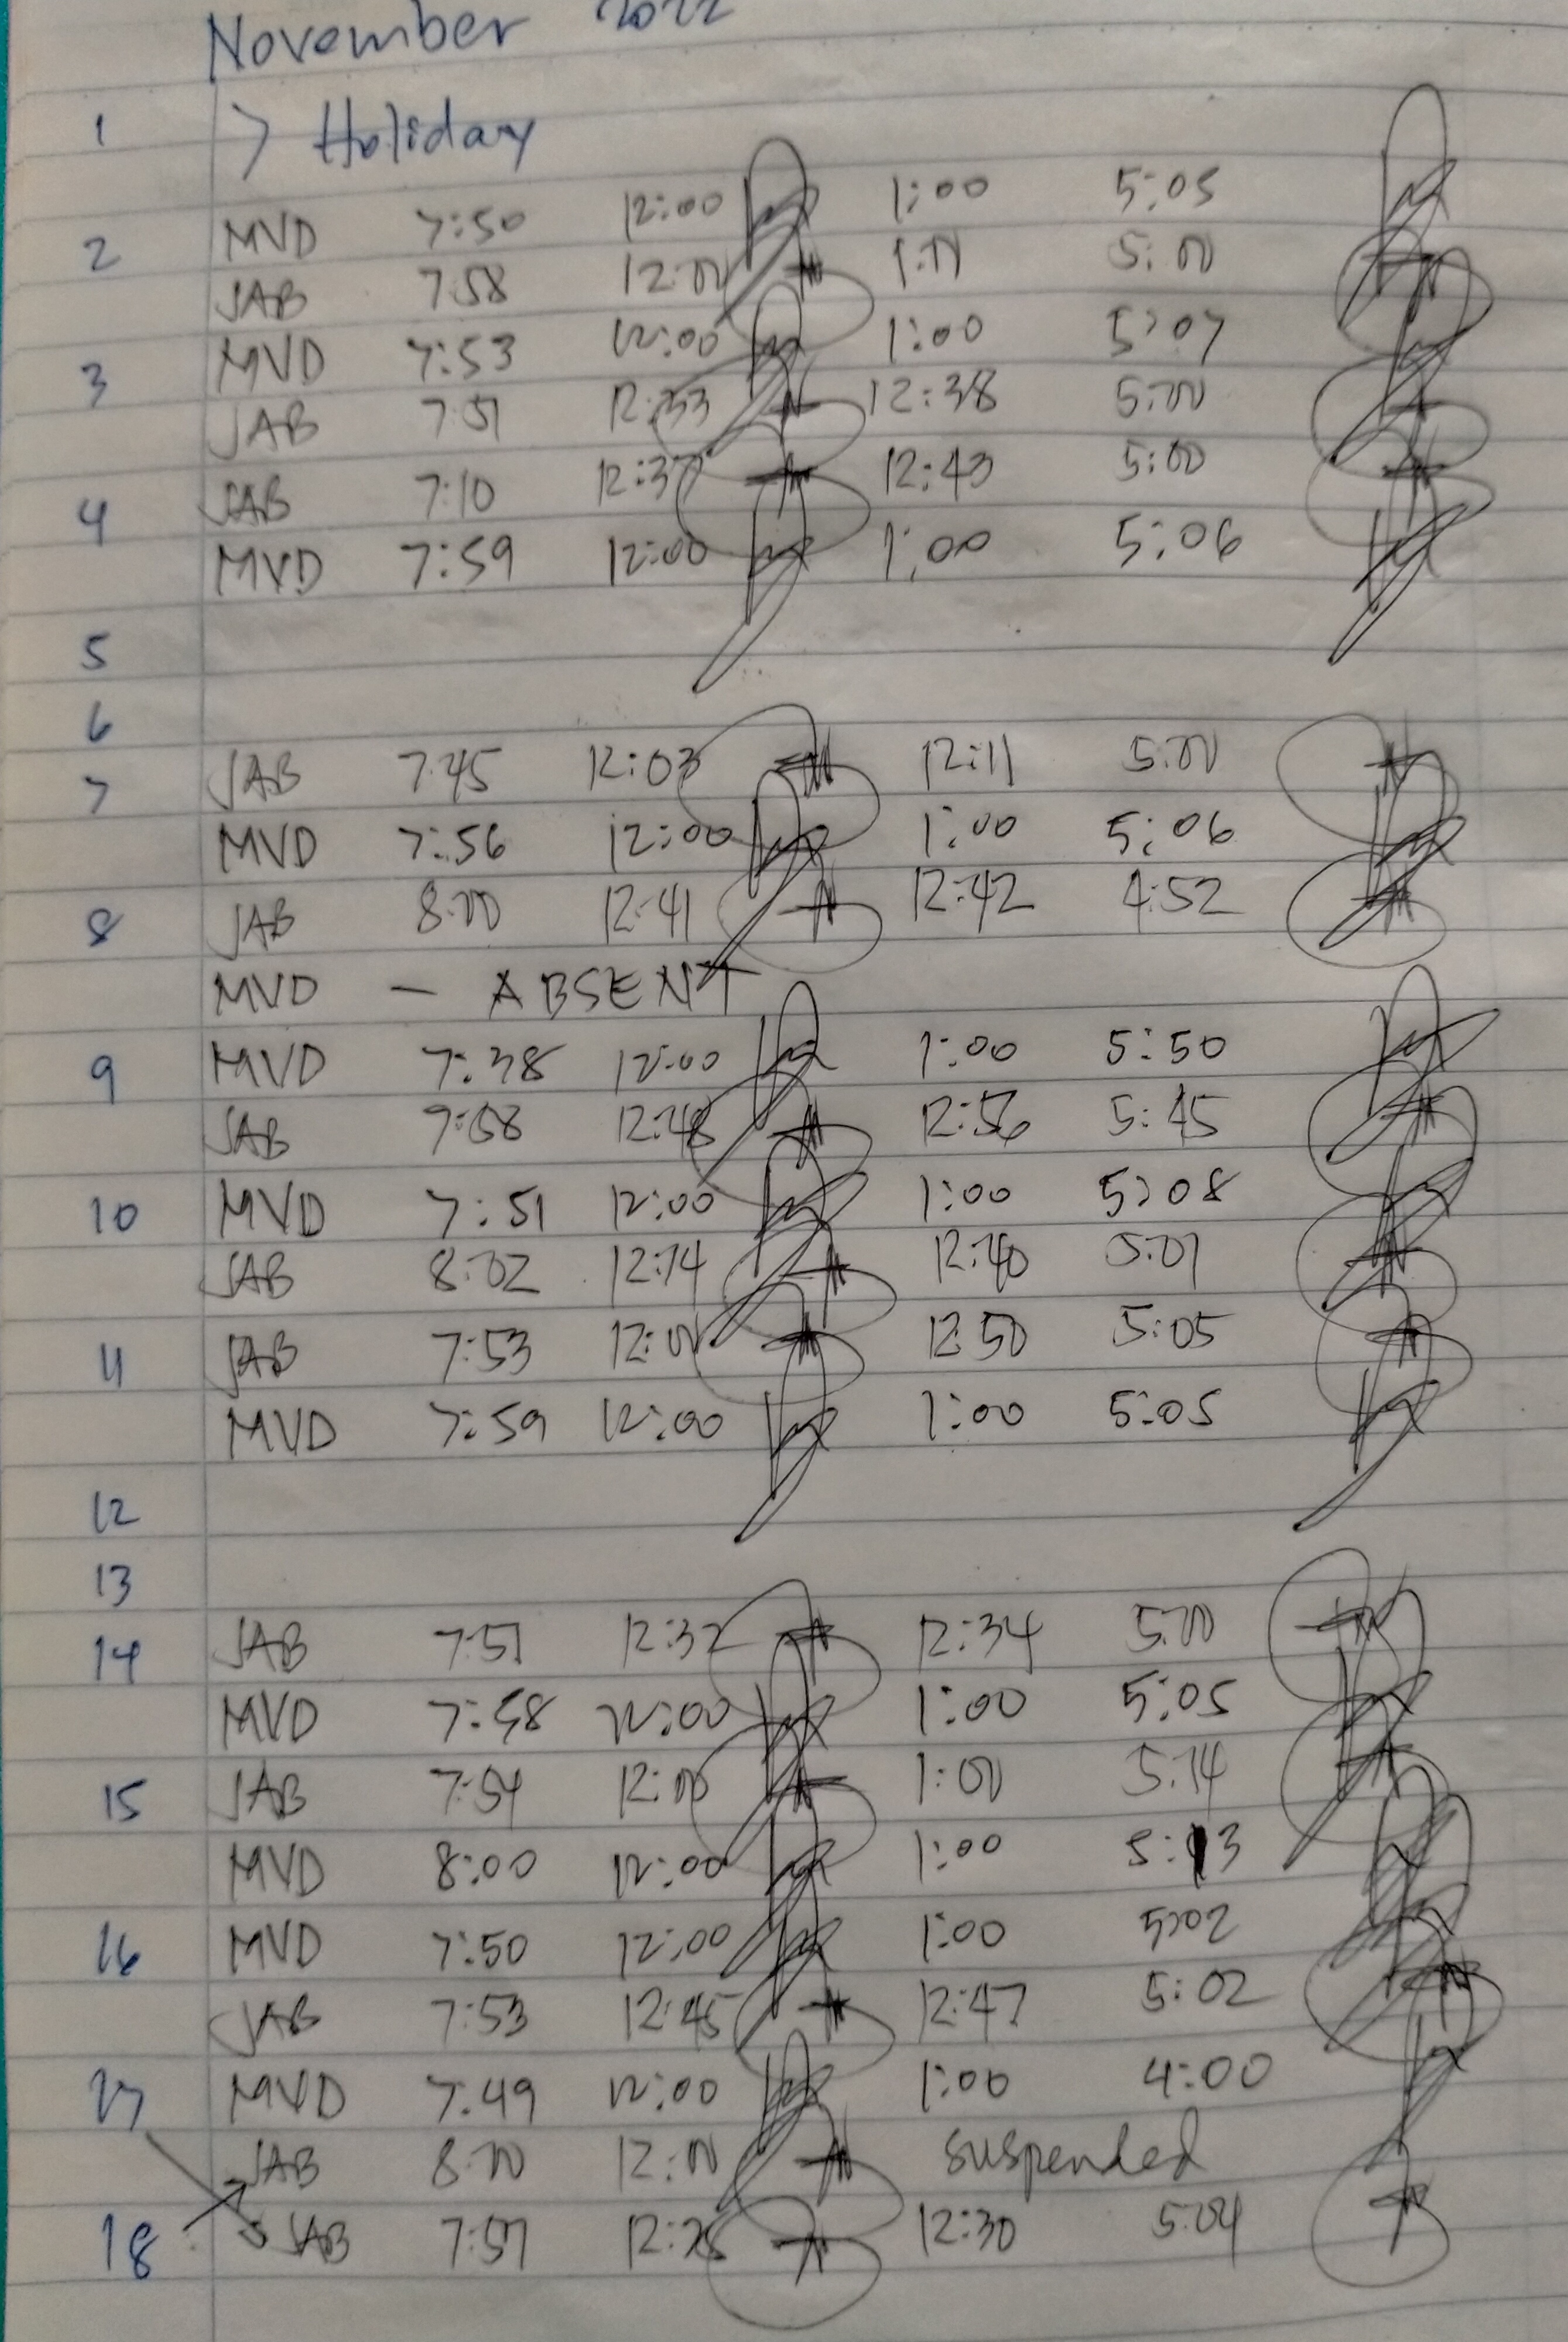 November 2022
1 > Holiday
2 MVD 7:50 12:00 1:00 5:05
JAB 7:58 12:00 1:00 5:00
3 MVD 7:53 12:00 1:00 5:07
JAB 7:51 12:33 12:38 5:00
4 JAB 7:10 12:37 12:43 5:00
MVD 7:59 12:00 1:00 5:06
5
6
7 JAB 7:45 12:03 12:11 5:00
MVD 7:56 12:00 1:00 5:06
8 JAB 8:00 12:41 12:42 4:52
MVD - ABSENT
9 MVD 7:38 12:00 1:00 5:50
JAB 12:48 12:56 5:45
10 MVD 7:51 12:00 1:00 5:08
JAB 8:02 12:14 12:40 5:01
11 JAB 7:53 12:00 12:50 5:05
MVD 7:59 12:00 1:00 5:05
12
13
14 JAB 7:51 12:32 12:34 5:00
MVD 7:58 12:00 1:00 5:05
15 JAB 7:54 12:00 1:00 5:14
MVD 8:00 12:00 1:00 5:13
16 MVD 7:50 12:00 1:00 5:02
JAB 7:53 12:45 12:47 5:02
17 MVD 7:49 12:00 1:00 4:00
JAB 8:00 12:00 suspended
18 JAB 7:57 12:30 5:04